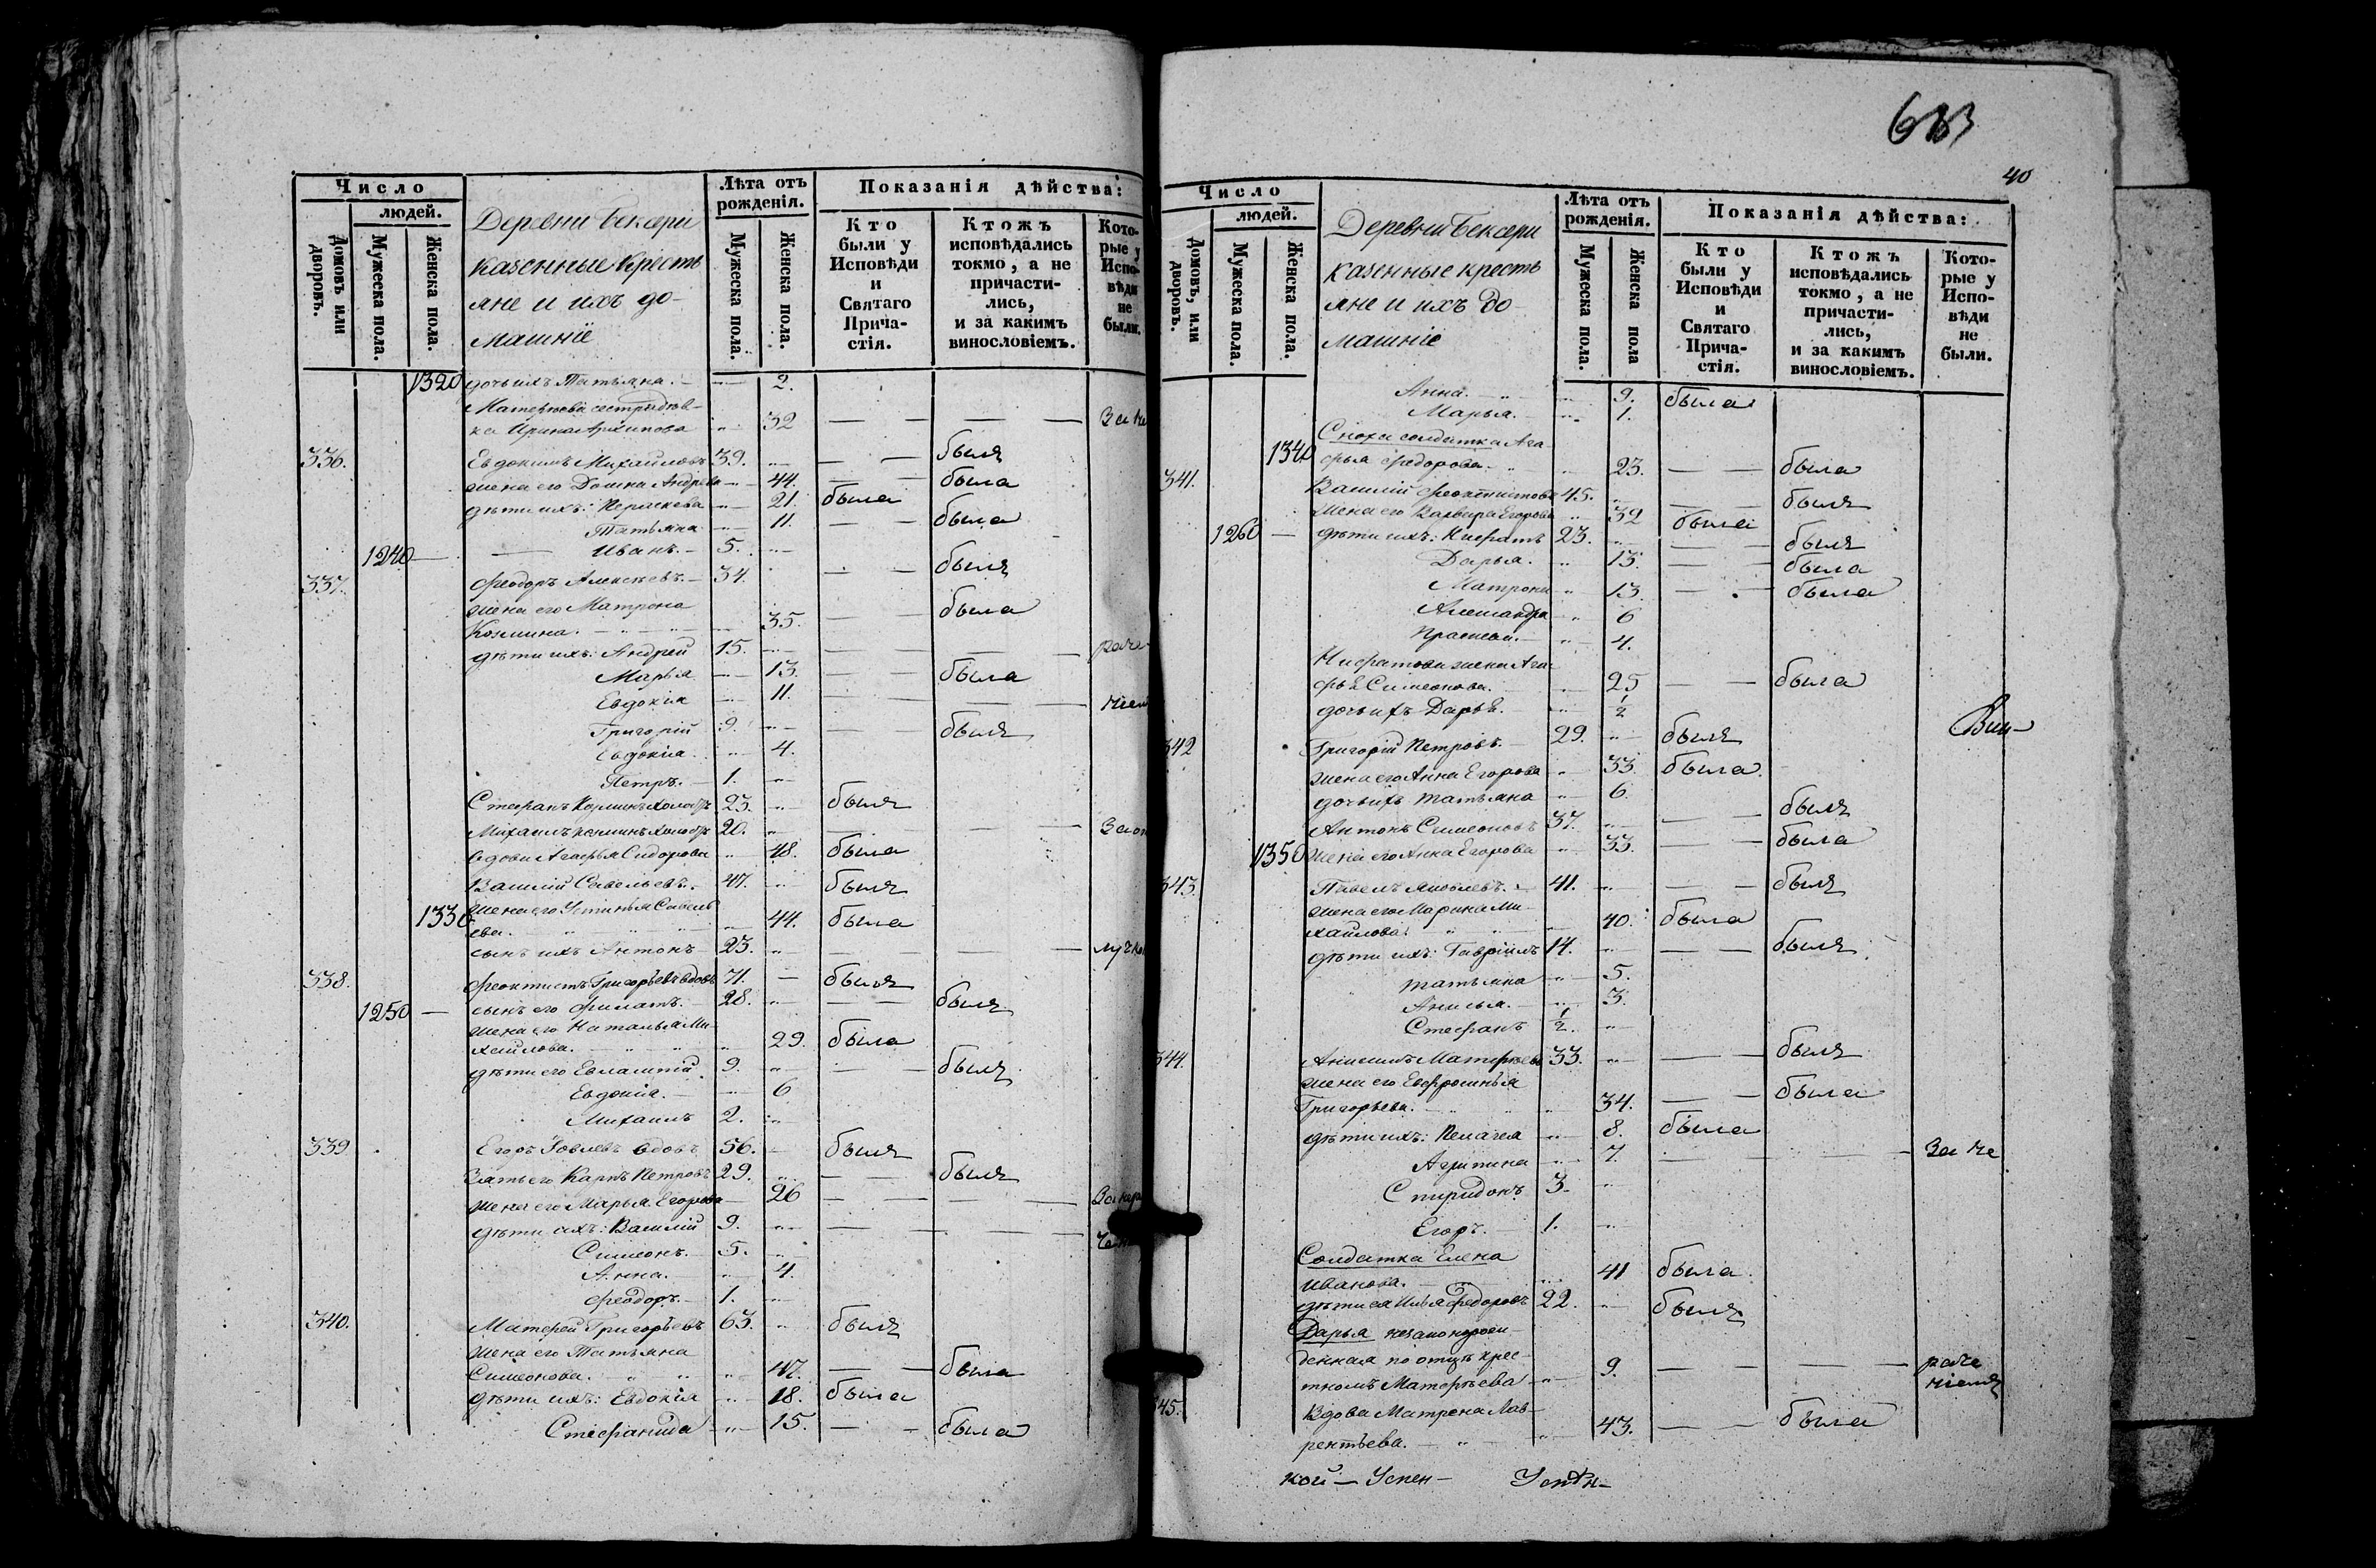 Число
людей.
Домовъ или дворовъ.
Мужеска пола.
Женска пола.
Деревни Бексери
казенные кресть
яне и ихъ до-
машніе
Лѣта отъ рожденія.
Мужеска пола.
Женска пола.
Показанія дѣйства:
Кто были у Исповѣди и Святаго Прича-стія.
Ктожъ исповѣдались токмо, а не причасти-лись, и за какимъ винословіемъ.
Кото-рые у Испо-вѣди не были.
1320 дочь ихъ Татьяна. 2.
Матвѣева сестра дѣв-
ка Ирина Архипова 32 За не
336. Евдокимъ Михайловъ 39. былъ
жена его Домна Андреева 44. была
дѣти ихъ: Параскева 21. была
Татьяна 11. была
1240 Иванъ. 5.
337. Феодоръ Алексѣевъ. 34. былъ
жена его Матрона
Козмина. 35. была
дѣти ихъ: Андрей 15. раче
Марья 13. была
Евдокия 11.
Григорій 9. былъ
Евдокіа. 4.
Петръ. 1.
Стефанъ Козминъ холостъ 23. былъ
Михаилъ Козминъ холостъ 20.
вдова Агафья Сидорова 48. была
Василій Савельевъ. 47. былъ
1330 жена его Устинья Савель
ева. 44. была
сынъ ихъ Антонъ 23.
338. Феоктистъ Григорьевъ вдовъ 71. былъ
1250 сынъ его Филатъ. 28. былъ
жена его Наталья Ми-
хайлова. 29. была
дѣти его Евлампій. 9. былъ
Евдокіа. 6
Михаилъ 2.
339 Егоръ Іовлевъ вдовъ 56. былъ
Зять его Карпъ Петровъ 29. былъ
жена его Марья Егорова 26
дѣти ихъ: Василій 9.
Симеонъ. 5.
Анна. 4.
Феодоръ. 1.
340. Матфей Григорьевъ 63. былъ
жена его Татьяна
Симеонова. 47. была
дѣти ихъ: Евдокія 18. была
Стефанида 15. была
40
Число
людей.
Домовъ, или дворовъ.
Мужеска пола.
Женска пола.
Деревни Бексери
казенные кресть
яне и ихъ до
машніе
Лѣта отъ рожденія.
Мужеска пола.
Женска пола
Показанія дѣйства:
Кто были у Исповѣди и Святаго Прича-стія.
Ктожъ исповѣдались токмо, а не причасти-лись, и за какимъ винословіемъ.
Кото-рые у Испо-вѣди не были.
Анна. 9. была
Марья. 1.
Сноха солдатка Ага
1340 фья Федорова. 23. была
341. Василій Феоктистовъ 45. былъ
жена его Варвара Егорова 32 была
1260 дѣти ихъ: Кифатъ 23. былъ
Дарья. 13. была
Матрона 13. была
Александра 6
Прасковья. 4.
жена Ага
фья Симеонова. 25 была
дочь ихъ Дарья. 1/2
342 Григорій Петровъ. 29. былъ
жена его Анна Егорова 33. была.
дочь ихъ Татьяна 6.
Антонъ Симеоновъ 37. былъ
1350 жена его Анна Егорова 33. была
343. Павелъ Яковлевъ. 41. былъ
жена его Марина Ми-
хайлова. 40. была
дѣти ихъ: Гавріилъ 14. былъ
Татьяна 5.
Анисья. 3.
Стефанъ 1/2.
344. Анисимъ Матфѣевъ 33. былъ
жена его Евфросинья
Григорьева. 34. была
дѣти ихъ: Пелагея 8. была
Агрипина 7. За не
Спиридонъ 3.
Егоръ. 1.
Солдатка Елена
Иванова. 41 была.
дѣти ея Илья Федоровъ 22. былъ
Дарья незаконорож-
денная по отцѣ крес-
тномъ Матфѣева 9. раче
ніемъ
345. Вдова Матрена Лав-
рентьева. 43. была
кой — Успен-